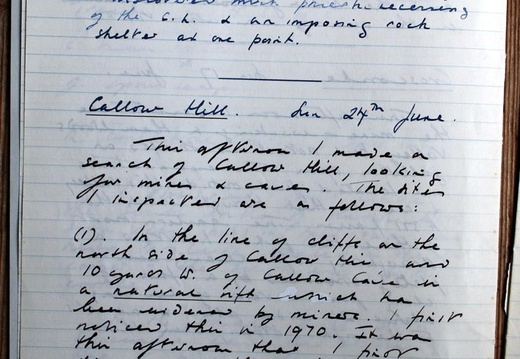 of the C.L. & an imposing rock
shelter at one point.
Callow Hill. Sun 24th June.
This afternoon I made a
search of Callow Hill, looking
for mines & caves. The sites
I inspected are as follows:
(1). In the line of cliffs on the
north side of Callow Hill and
10 yards W. of Callow Cave is
a natural rift which has
been widened by miners. I first
noticed this in 1970. It was
this afternoon that I first